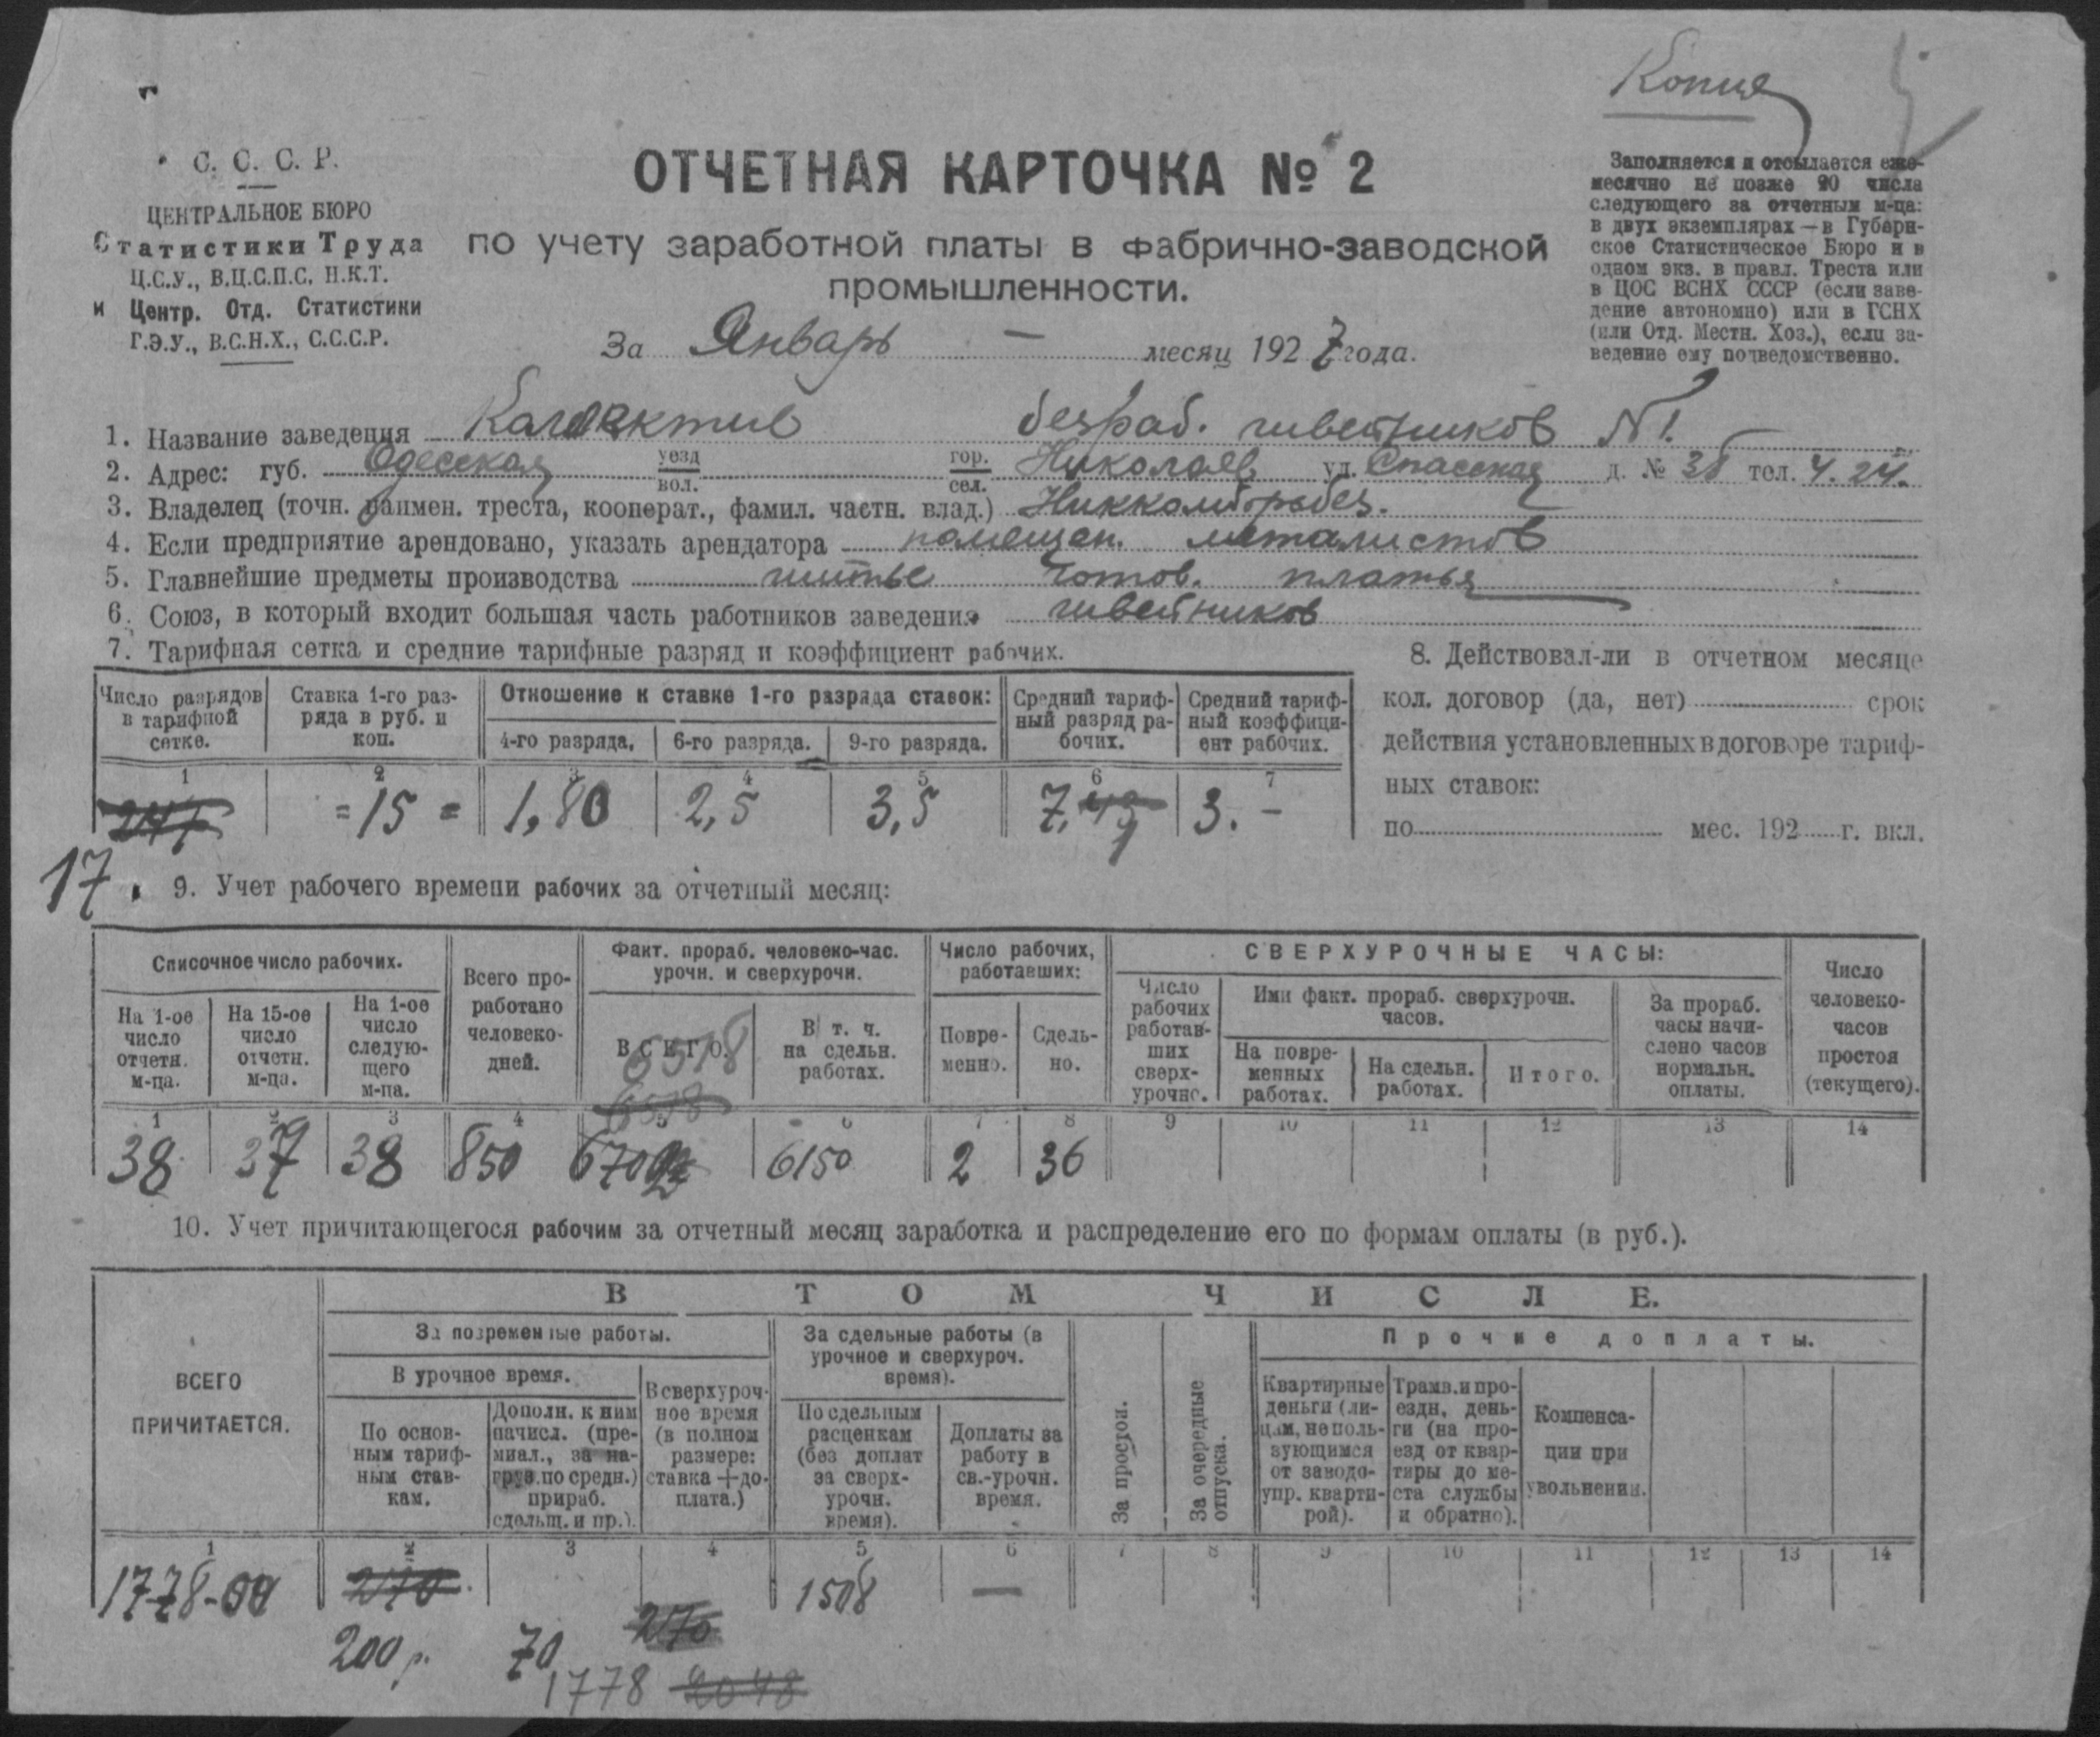 Копия
С. С. С. Р.
ЦЕНТРАЛЬНОЕ БЮРО
Статистики Труда
Ц.С.У., В.Ц.С.П.С. Н.К.Т.
и Центр. Отд. Статистики
Г.Э.У., В.С.Н.Х., С.С.С.Р.
ОТЧЕТНАЯ КАРТОЧКА № 2
по учету заработной платы в фабрично-заводской
промышленности.
За Январь — месяц 1927 года.
Заполняется и отсылается еже-
месячно не позже 20 числа
следующего за отчетным м-ца:
в двух экземплярах — в Губерн-
ское Статистическое Бюро и в
одном экз. в правл. Треста или
в ЦОС ВСНХ СССР (если заве-
дение автономно) или в ГСНХ
(или Отд. Местн. Хоз.), если за-
ведение ему подведомственно.
1. Название заведения Коллектив безраб. швейников № 1.
2. Адрес: губ. Одесская уезд вол. гор. сел. Николаев ул. Спасская д. № 38 тел. 4.24.
3. Владелец (точн. наимен. треста, кооперат., фамил. частн. влад.) Никкомборьбез.
4. Если предприятие арендовано, указать арендатора помещен. металистов
5. Главнейшие предметы производства шитье готов. платья
6. Союз, в который входит большая часть работников заведения швейников
7. Тарифная сетка и средние тарифные разряд и коэффициент рабочих.
Число разрядов в тарифной сетке.
Ставка 1-го раз-ряда в руб. и коп.
Отношение к ставке 1-го разряда ставок:
4-го разряда.
6-го разряда.
9-го разряда.
Средний тариф-ный разряд ра-бочих.
Средний тариф-ный коэффици-ент рабочих.
1 2 3 4 5 6 7
=15= 1,80 2,5 3,5 7, 3.-
17
8. Действовал-ли в отчетном месяце
кол. договор (да, нет) срок
действия установленных в договоре тариф-
ных ставок:
по мес. 192 г. вкл.
9. Учет рабочего времени рабочих за отчетный месяц:
Списочное число рабочих.
На 1-ое число отчетн. м-ца.
На 15-ое число отчетн. м-ца.
На 1-ое число следую-щего м-ца.
Всего про-работано человеко-дней.
Факт. прораб. человеко-час. урочн. и сверхурочн.
ВСЕГО.
6518
В т. ч. на сдельн. работах.
Число рабочих, работавших:
Повре-менно.
Сдель-но.
СВЕРХУРОЧНЫЕ ЧАСЫ:
Число рабочих работав-ших сверх-урочно.
Ими факт. прораб. сверхурочн. часов.
На повре-менных работах.
На сдельн. работах.
Итого.
За прораб. часы начи-слено часов нормальн. оплаты.
Число человеко-часов простоя (текущего).
1 2 3 4 5 6 7 8 9 10 11 12 13 14
38 37 38 850 6150 2 36
10. Учет причитающегося рабочим за отчетный месяц заработка и распределение его по формам оплаты (в руб.).
ВСЕГО ПРИЧИТАЕТСЯ.
В ТОМ ЧИСЛЕ.
За повременные работы.
В урочное время.
По основ-ным тариф-ным став-кам.
Дополн. к ним начисл. (пре-миал., за на-груз. по средн.) прираб. сдельщ. и пр.).
В сверхуроч-ное время (в полном размере: ставка + до-плата.)
За сдельные работы (в урочное и сверхуроч. время).
По сдельным расценкам (без доплат за сверх-урочн. время).
Доплаты за работу в св.-урочн. время.
За простои.
За очередные отпуска.
Прочие доплаты.
Квартирные деньги (ли-цам, не поль-зующимся от заводо-упр. кварти-рой).
Трамв. и про-ездн. день-ги (на про-езд от квар-тиры до ме-ста службы и обратно).
Компенса-ции при увольнении.
1 2 3 4 5 6 7 8 9 10 11 12 13 14
1778-00 270 1508 —
200 р. 70 270
1778 2048